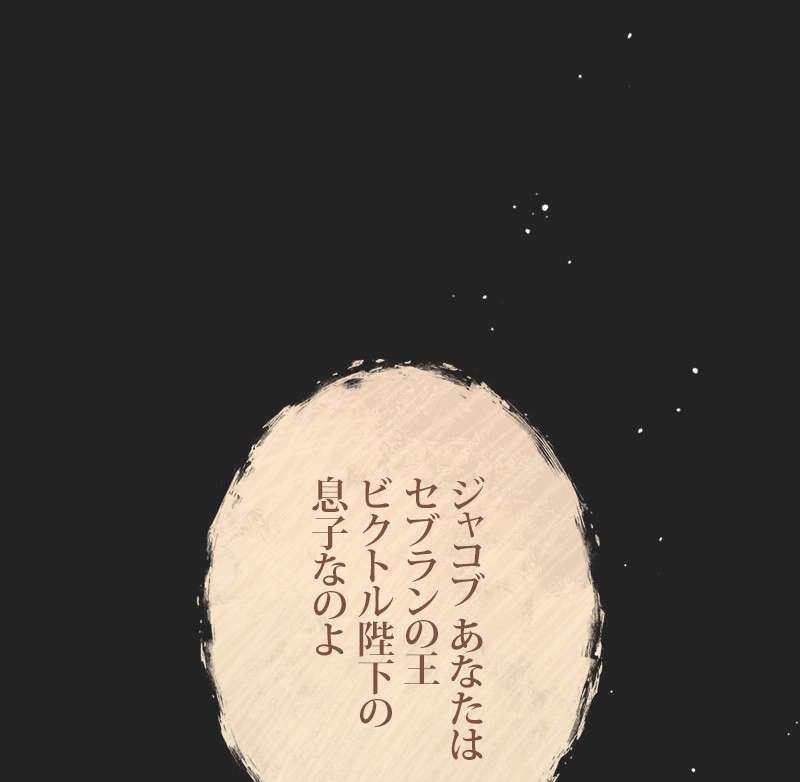 ジャコブ あなたは
セブランの王
ビクトル陛下の
息子なのよ